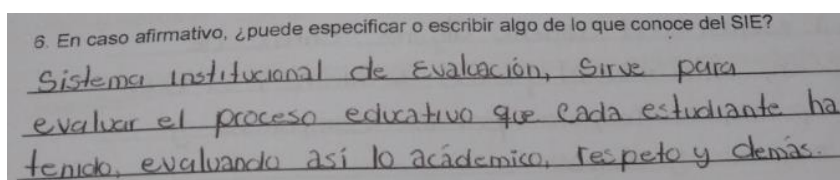 6. En caso afirmativo, ¿puede especificar o escribir algo de lo que conoce del SIE?
Sistema institucional de Evaluación, Sirve para
evaluar el proceso educativo que cada estudiante ha
tenido, evaluando así lo acádemico, respeto y demás.